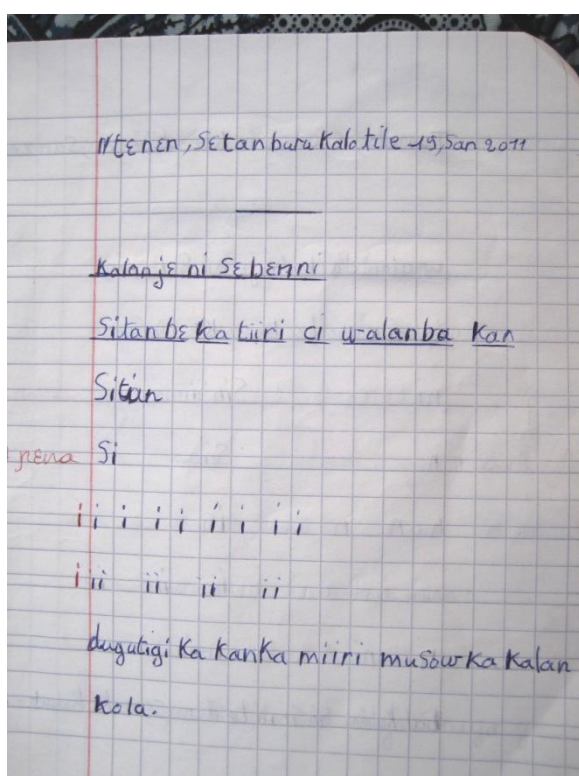 Ntɛnɛn, Sɛtanburu Kalo tile 19, San 2011
Kalanjɛ ni Sɛbɛnni
Sitan bɛ ka tiiri ci walanba kan
Sitan
ɲɛna Si
i i i i i i i i i
i ii ii ii ii
dugutigi ka kanka miiri musow ka kalan
kola.